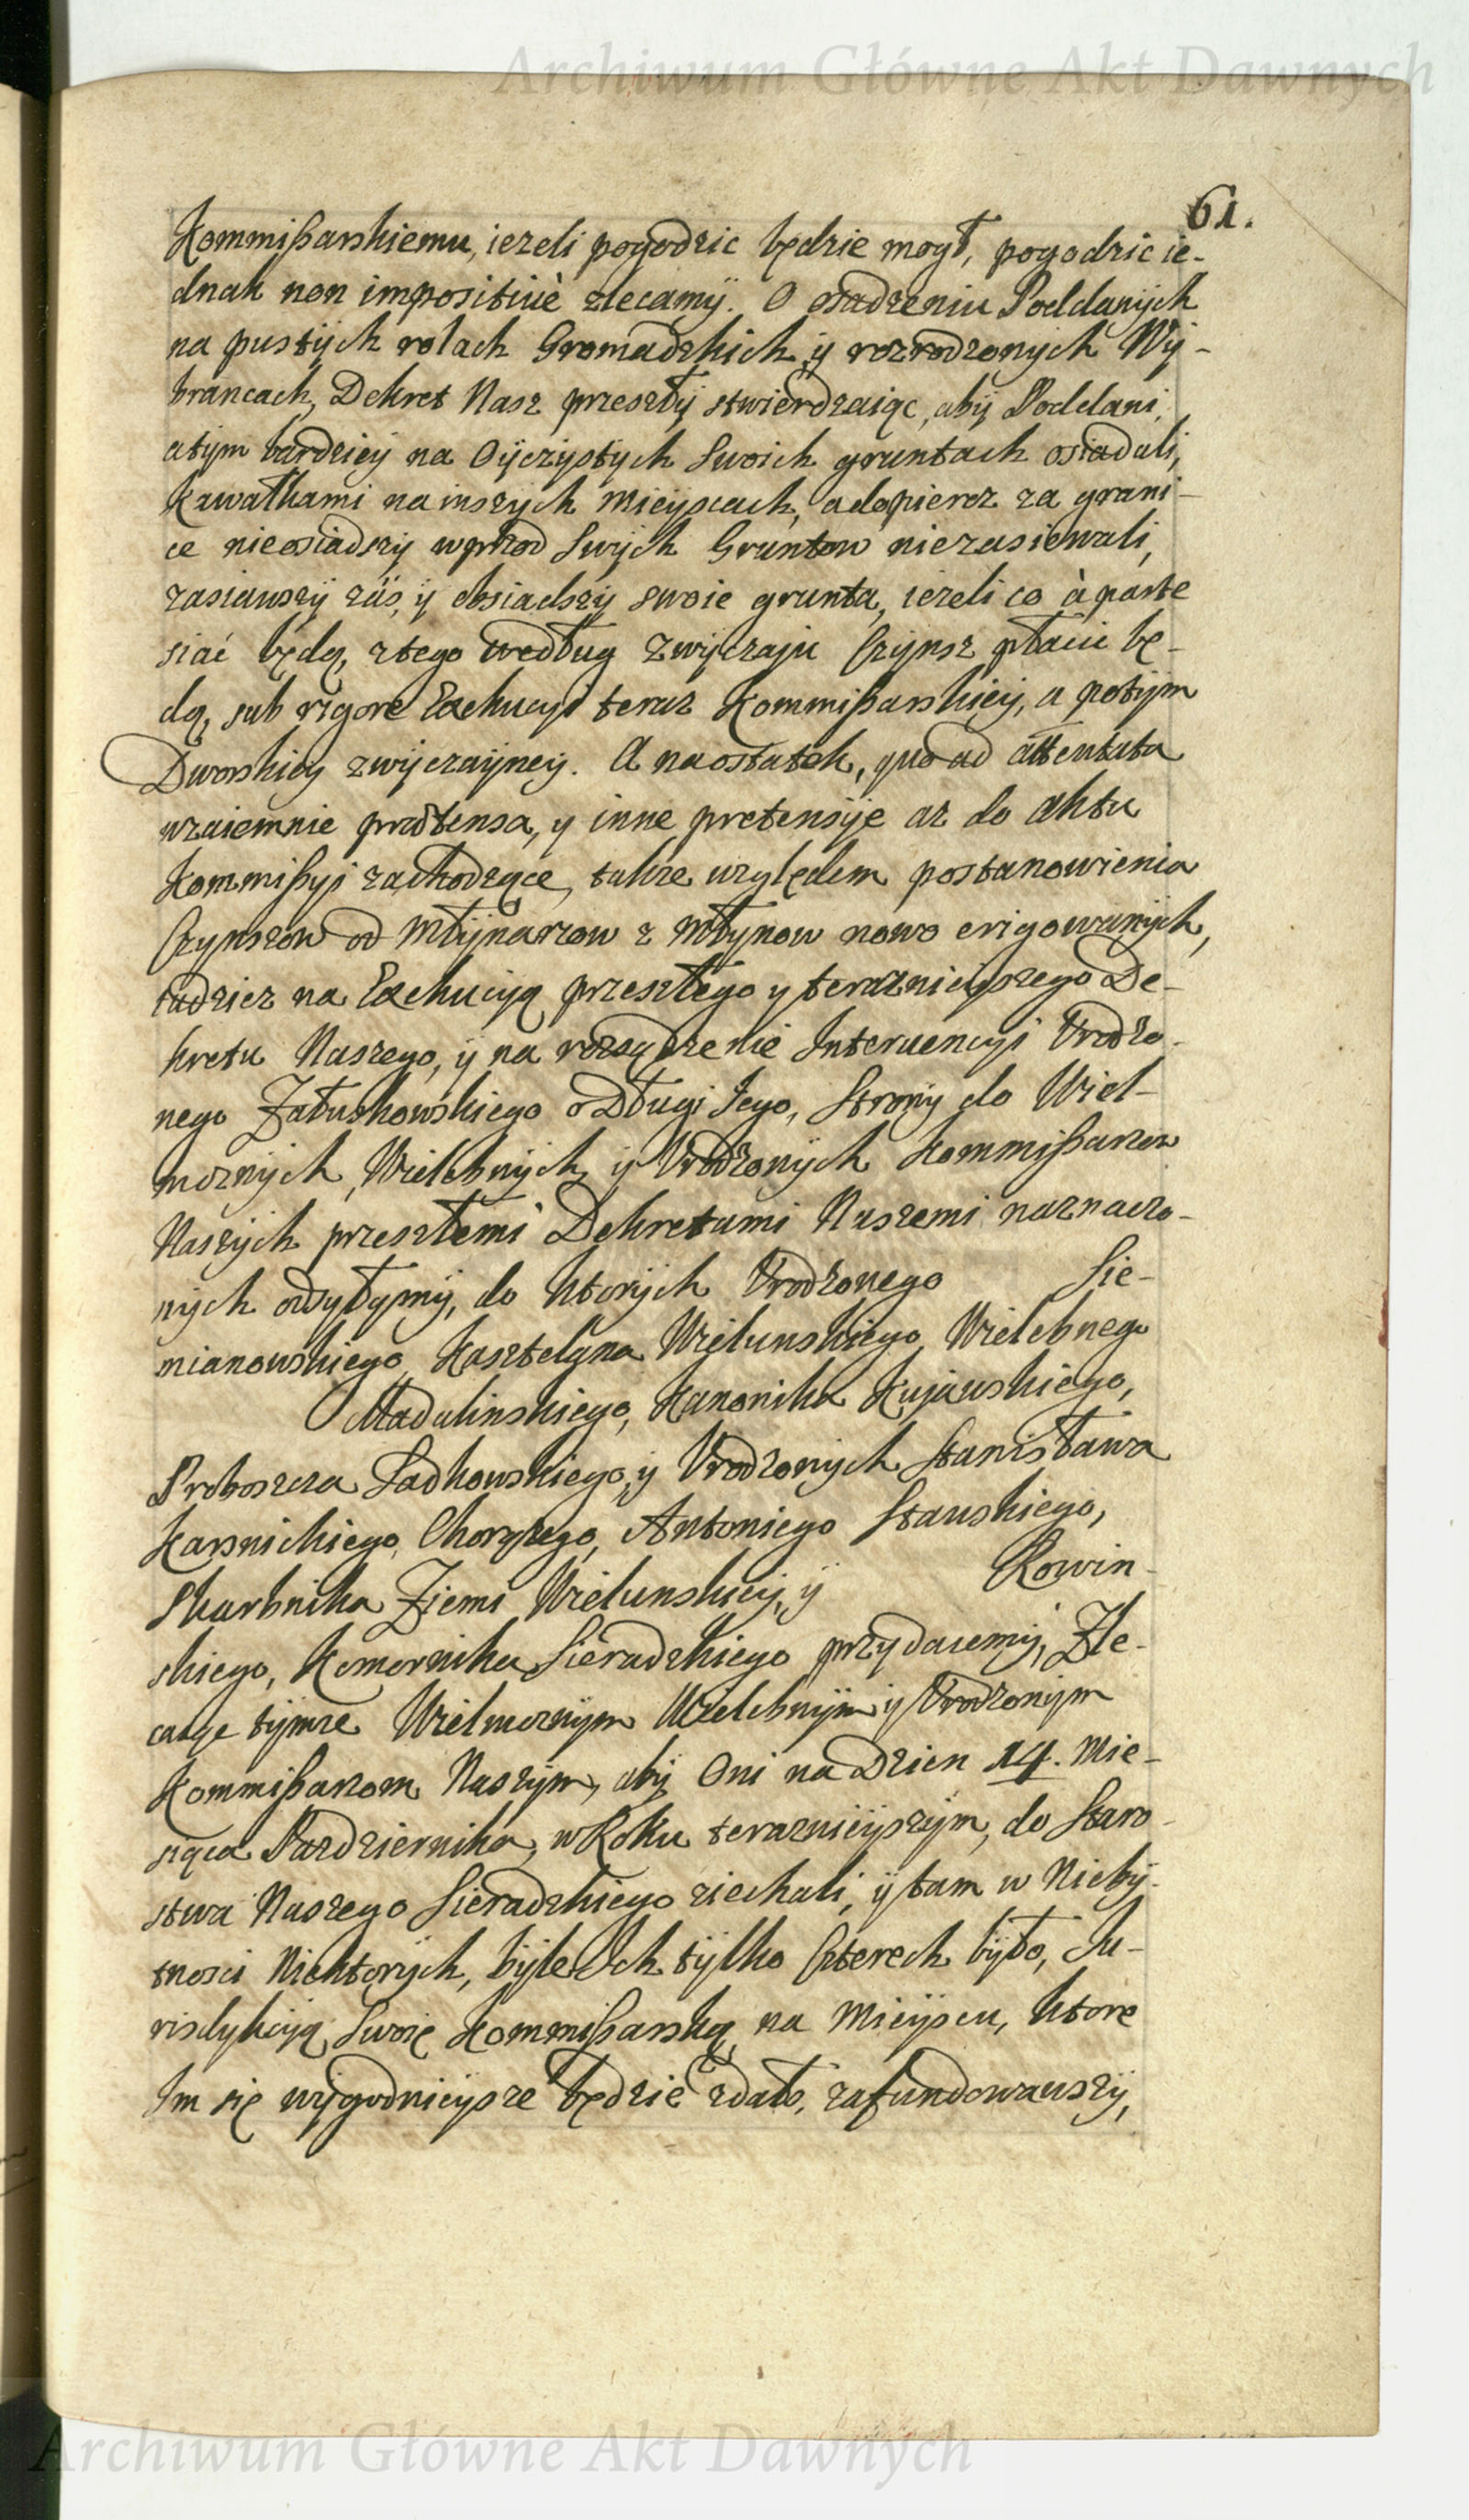 Archiwum Główne Akt Dawnych
61.
Kommißarskiemu, iezeli pogodzic będzie mogł, pogodzic ie-
dnak non impositivè zlecamÿ. O osadzeniu Poddanÿch
na pustÿch rolach Gromadzkich ÿ rozrodzonÿch Wÿ-
brancach, Dekret Nasz przeszłÿ stwierdzaiąc, abÿ Poddani,
a tÿm bardzieÿ na Oÿczÿstÿch Swoich gruntach osiadali,
Kawałkami na inszÿch Mieÿscach, a dopieroz za grani-
ce nieosiadszÿ wprzod Swÿch Gruntow niezasiewali,
zasiawszÿ zäs, ÿ obsiadszÿ swoie grunta, iezeli co à parte
siać będą, z tego według Zwÿczaju Czÿnsz płacic bę-
dą, sub rigore Exekucÿi teraz Kommißarskieÿ, a potÿm
Dworskieÿ zwÿczaÿneÿ. A naostatek, quo ad attentata
wzaiemnie prætensa, y inne pretensÿe az do Aktu
Kommißÿi zachodzące, takze względem postanowienia
Czynszow od Młÿnarzow z Młynow nowo erigowanÿch,
tudziez na Exekucÿą przeszłego y teraznieÿszego De-
kretu Naszego, ÿ na rozsądzenie Interuencÿi Urodzo-
nego Załuskowskiego o Długi Jego, Stronÿ do Wiel-
moznÿch, Wielebnÿch, ÿ Urodzonÿch Kommißarzow
Naszÿch przeszłemi Dekretami Naszemi naznaczo-
nÿch odsyłamÿ, do ktorÿch Urodzonego Sie-
mianowskiego, Kasztelana Wielunskiego, Wielebnego
Madalinskiego, Kanonika Kujawskiego,
Proboszcza Sadkowskiego, ÿ Urodzonÿch Stanisława
Karsnickiego, Chorązego, Antoniego Stawskiego,
Skarbnika Ziemi Wielunskieÿ, ÿ Rowin-
skiego, Komornika Sieradzkiego przydaiemÿ, Zle-
caiąc tÿmze Wielmoznÿm Wielebnÿm ÿ Urodzonÿm
Kommißarzom Naszÿm, abÿ Oni na Dzien 14. Mie-
siąca Pazdziernika, w Roku teraznieÿszÿm, do Staro-
stwa Naszego Sieradzkiego ziechali, ÿ tam w Niebÿ-
tnosci Niektorÿch, bÿle Ich tÿlko Czterech bÿło, Ju-
risdykcÿą Swoię Kommißarską na Mieÿscu, ktore
Im się wÿgodnieÿsze będzie zdało, zafundowawszÿ,
Archiwum Główne Akt Dawnych